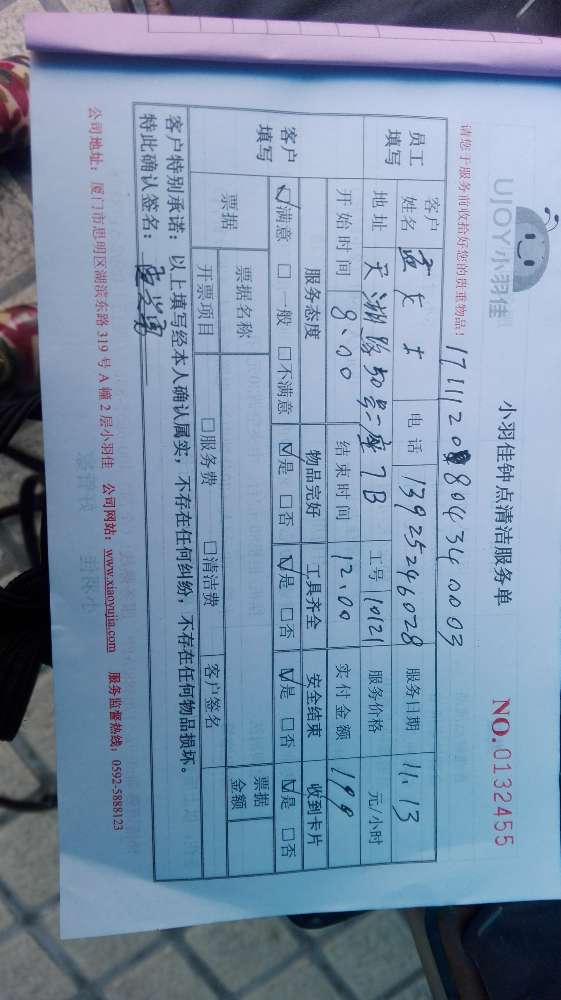 UJOY小羽佳
小羽佳钟点清洁服务单
NO.0132455
请您于服务前收拾好您的贵重物品！
员工填写
客户姓名 电话 13925246028 服务日期 11.13
地址 天湖路50号一座7B 工号 10121 服务价格 元/小时
开始时间 8:00 结束时间 12.00 实付金额 199
客户填写
服务态度 物品完好 工具齐全 安全结束 收到卡片
☑满意 □一般 □不满意 ☑是 □否 ☑是 □否 ☑是 □否 ☑是 □否
票据 票据名称 票据金额
开票项目 □服务费 □清洁费 客户签名
客户特别承诺：以上填写经本人确认属实，不存在任何纠纷，不存在任何物品损坏。
特此确认签名：
公司地址：厦门市思明区湖滨东路319号A幢2层小羽佳 公司网站：www.xiaoyujia.com 服务监督热线：0592-5888123